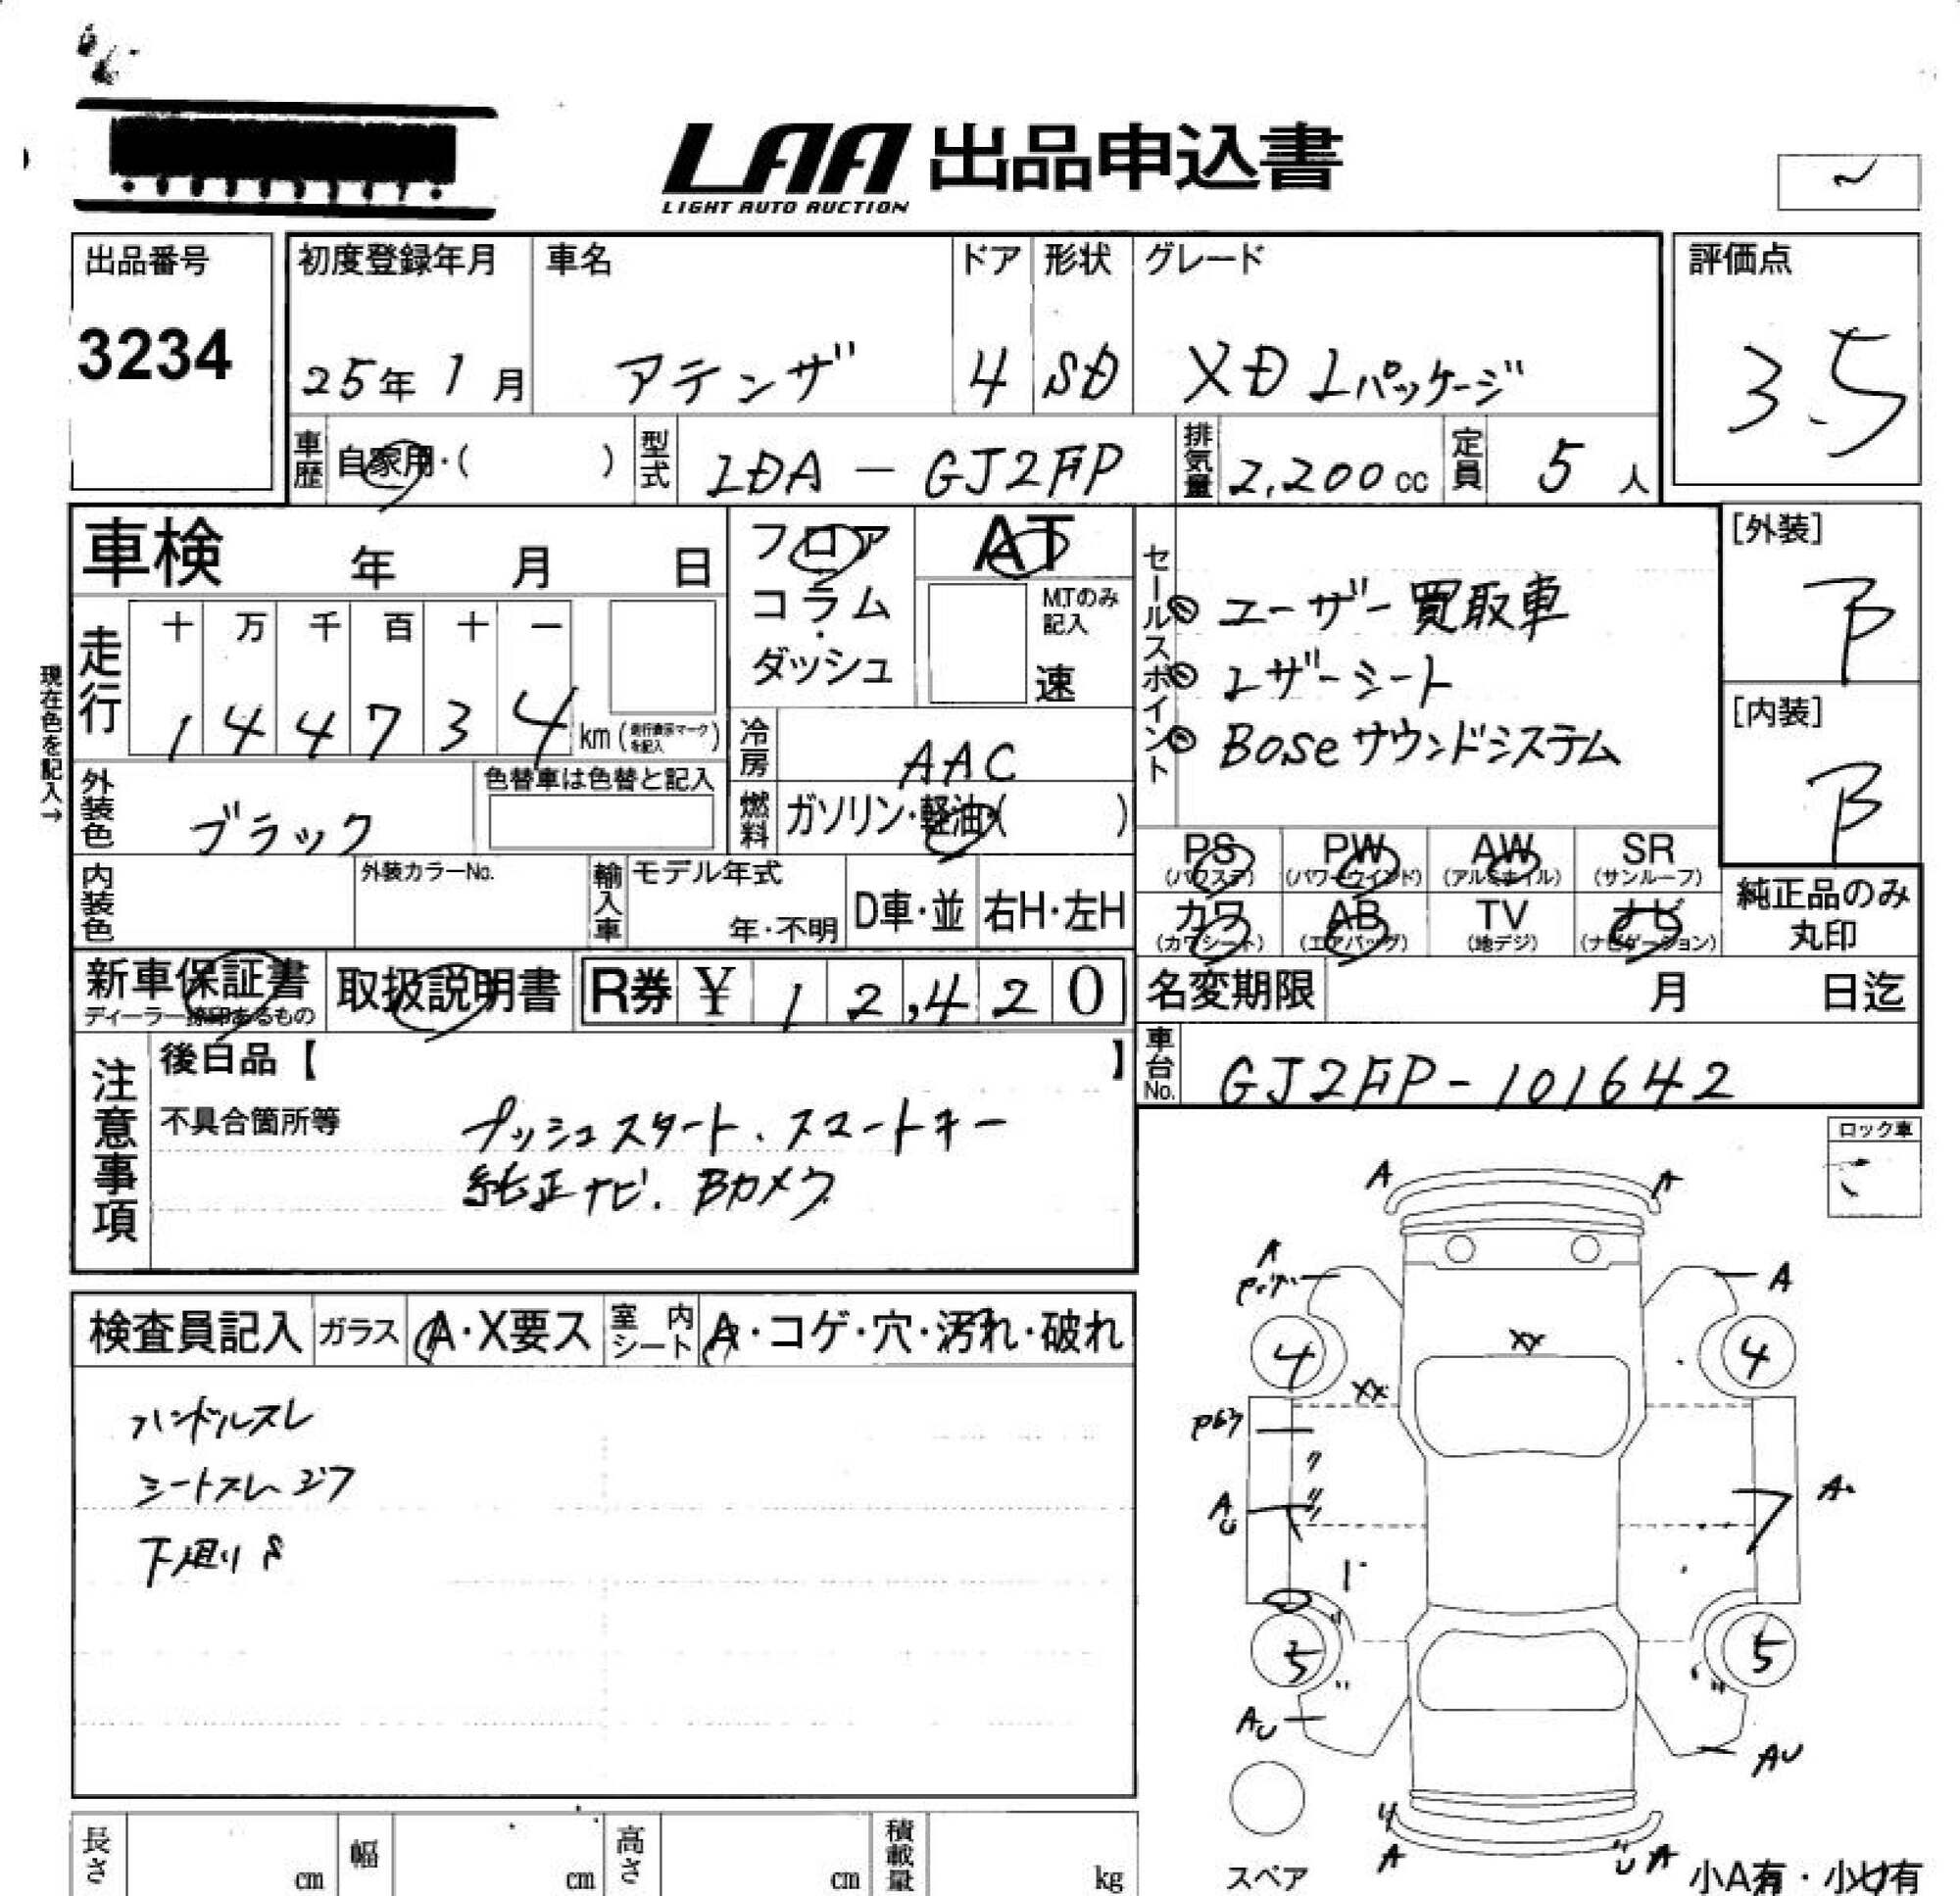 LAA 出品申込書
LIGHT AUTO AUCTION
出品番号
3234
初度登録年月
25年 1月
車名
アテンザ
ドア
4
形状
SD
グレード
XD Lパッケージ
評価点
3.5
車歴 自家用・( )
型式 LDA - GJ2FP
排気量 2,200 cc
定員 5 人
車検 年 月 日
フロア・コラム・ダッシュ
AT
MTのみ記入
速
セールスポイント
ユーザー買取車
レザーシート
Boseサウンドシステム
[外装]
B
[内装]
B
現在色を記入→
走行
十 万 千 百 十 一
1 4 4 7 3 4 km (走行表示マークを記入)
冷房 AAC
燃料 ガソリン・軽油・( )
外装色 ブラック
色替車は色替と記入
内装色
外装カラーNo.
輸入車
モデル年式
年・不明
D車・並
右H・左H
PS (パワステ)
PW (パワーウインド)
AW (アルミホイル)
SR (サンルーフ)
カワ (カワシート)
AB (エアバッグ)
TV (地デジ)
ナビ (ナビゲーション)
純正品のみ丸印
新車保証書
ディーラー捺印あるもの
取扱説明書
R券 ¥ 1 2,4 2 0
名変期限 月 日迄
車台No. GJ2FP-101642
注意事項
後日品【 】
不具合箇所等
プッシュスタート、スマートキー
純正ナビ、Bカメラ
ロック車
検査員記入
ガラス A・X要ス
室内シート A・コゲ・穴・汚れ・破れ
ハンドルスレ
シートスレ
下廻り
A A
A
A
4 4
XX
XX
A
AU
5 5
AU
AU
A
A
スペア
小A有・小U有
長さ cm
幅 cm
高さ cm
積載量 kg